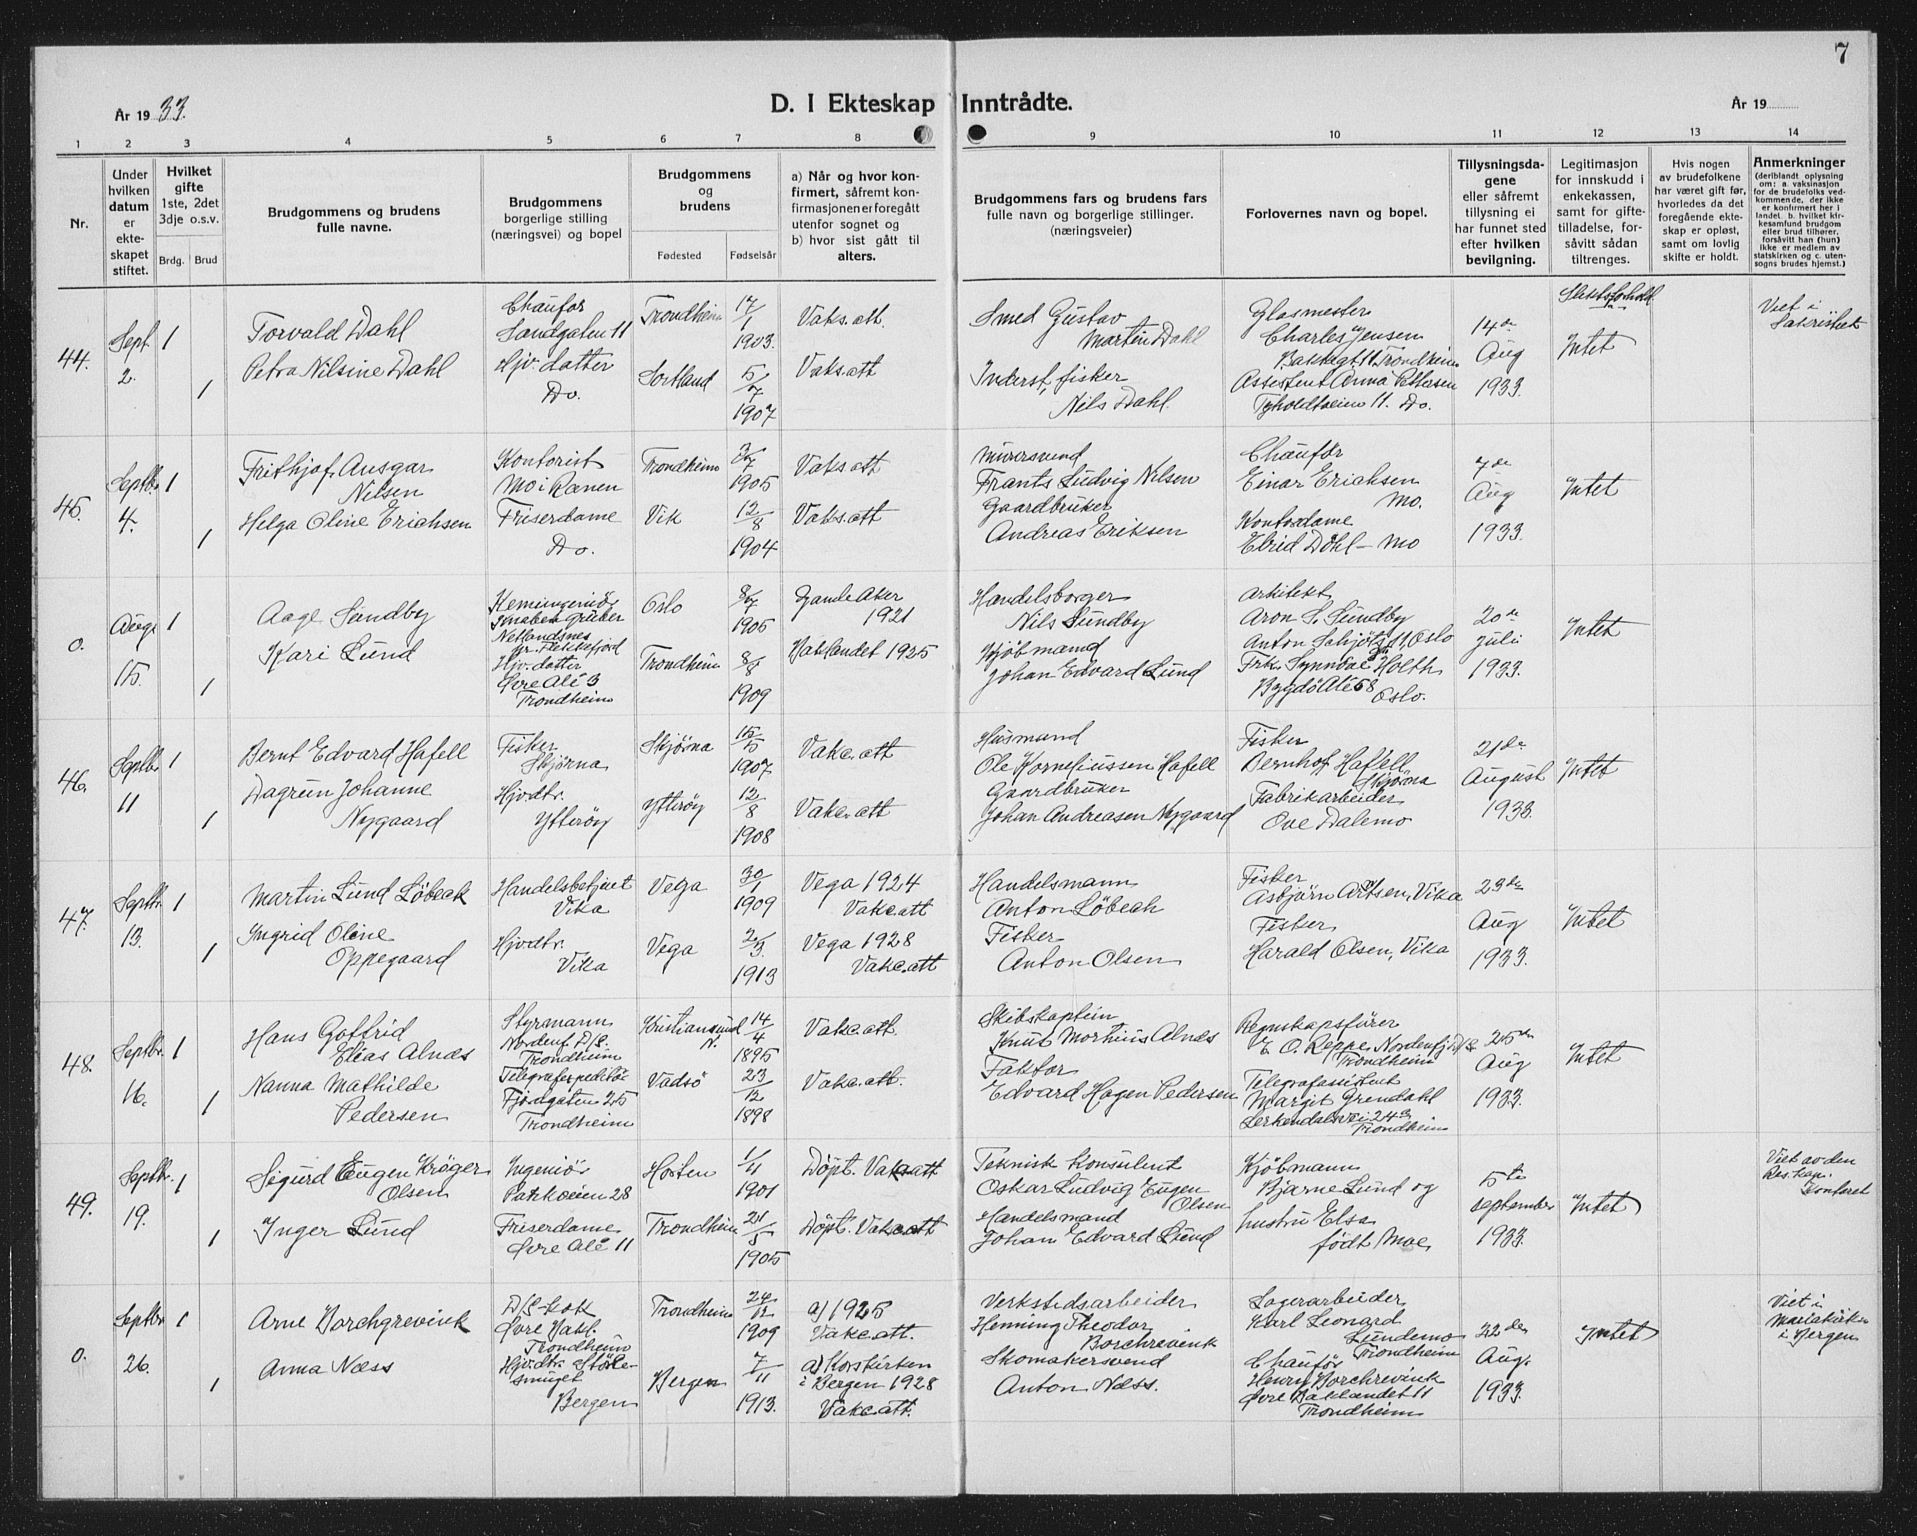 7
År 1933.
D. I Ekteskap Inntrådte.
År 19
1 2 3 4 5 6 7 8 9 10 11 12 13 14
Nr.
Under hvilken datum er ekteskapet stiftet.
Hvilket gifte 1ste, 2det 3dje o.s.v.
Brdg. Brud
Brudgommens og brudens fulle navne.
Brudgommens borgerlige stilling (næringsvei) og bopel
Brudgommens og brudens
Fødested Fødselsår
a) Når og hvor konfirmert, såfremt konfirmasjonen er foregått utenfor sognet og b) hvor sist gått til alters.
Brudgommens fars og brudens fars fulle navn og borgerlige stillinger. (næringsveier)
Forlovernes navn og bopel.
Tillysningsdagene eller såfremt tillysning ei har funnet sted efter hvilken bevilgning.
Legitimasjon for innskudd i enkekassen, samt for giftetilladelse, forsåvitt sådan tiltrenges.
Hvis nogen av brudefolkene har været gift før, hvorledes da det foregående ekteskap er opløst, samt om lovlig skifte er holdt.
Anmerkninger (deriblandt oplysning om: a. vaksinasjon for de brudefolks vedkommende, der ikke er konfirmert her i landet. b. hvilket kirkesamfund brudgom eller brud tilhører, forsåvitt han (hun) ikke er medlem av statskirken og c. utensogns brudes hjemst.)
44.
Sept. 2.
1
1
Torvald Dahl
Petra Nilsine Dahl
Chaufør
Sandgaten 11
Hjv. datter
Do.
Trondheim
17/1 1903.
Sortland
5/7 1907
Vaks.att.
Vaks.att
Smed Gustav
Martin Dahl
Inderst, fisker
Nils Dahl.
Glasmester
Charles Jensen
Baklagt. 11 Trondheim
Assistent Anna Pettersen
Tyholdtveien 11. Do.
14de
Aug
1933.
Slektsforhold
Intet
Viet i
45.
Septbr. 4.
1
1
Frithjof Ansgar
Nilsen
Helga Oline Erichsen
Kontorist
Mo i Ranen
Friserdame
Do.
Trondheim
3/7 1905
Vik
12/8 1904
Vaks.att
Vaks.att
Murersvend
Frants Ludvig Nilsen
Gaardbruker
Andreas Eriksen
Chaufør
Einar Erichsen
Mo.
Kontordame
Elrid Dahl - Mo
7de
Aug
1933.
Intet
0.
Aug. 15.
1
1
Aage Sundby
Kari Lund
Kemiingeniør
Knaben Gruber
Netlandsnes
pr. Flekkefjord
Hjv. datter
Øvre Alé 3
Trondheim
Oslo
8/7 1905
Trondheim
8/8 1909
Gamle Aker
1921
Baklandet 1925
Handelsborger
Nils Sundby
Kjöbmand
Johan Edvard Lund
Arkitekt
Aron S. Sundby
Anton Schjötsgt 11, Oslo
Frk. Synnöve Holth
Bygdö Alé 58
Oslo.
20de
Juli
1933.
Intet
46.
Septbr. 11
1
1
Bernt Edvard Hafell
Dagrun Johanne
Nygaard
Fisker
Skjörna
Hjvdtr.
Ytteröy
Skjörna
15/5 1907
Ytteröy
12/8 1908
Vaks.att
Vaks.att
Husmand
Ole Korneliussen Hafell
Gaardbruker
Johan Andreasen Nygaard
Fisker
Bernhof Hafell
Skjörna
Fabrikarbeider
Ove Dalemo
21de
August
1933.
Intet
47.
Septbr. 13.
1
1
Martin Lund Löbeck
Ingrid Oline
Oppegaard
Handelsbetjent
Vika
Hjvdtr.
Vika
Vega
30/1 1909
Vega
2/3. 1913
Vega 1924
Vaks.att
Vega 1928
Vaks.att
Handelsmann
Anton Löbeck
Fisker
Anton Olsen
Fisker
Asbjörn Antsen, Vika
Fisker
Harald Olsen, Vika
23de
Aug
1933.
Intet
48.
Septbr. 16.
1
1
Hans Gotfrid
Elias Alnæs
Nanna Mathilde
Pedersen
Styrmann
Nordenf. D/S.
Trondheim
Telegrafexpeditör
Fjordgaten 25
Trondheim
Kristiansund N.
14/4 1895
Vadsö
23/12 1898
Vaks.att.
Vaks.att.
Skibskaptein
Knut Morthius Alnæs
Faktor
Edvard Hagen Pedersen
Regnskapsförer
E. O. Reppe, Nordenfj. D/S
Trondheim
Telegrafassistent
Margit Grendahl
Lerkendalsvei 24 b
Trondheim
25de
Aug
1933.
Intet
49.
Septbr. 19.
1
1
Sigurd Eugen Kröger
Olsen
Inger Lund
Ingeniör
Parkveien 28
Friserdame
Øvre Alé 11
Horten
1/11 1901
Trondheim
24/5 1905
Döpt. Vaks.att
Döpt. Vaks.att
Teknisk Konsulent
Oskar Ludvig Eugen
Olsen
Handelsmand
Johan Edvard Lund
Kjöbmann
Bjarne Lund og
hustru Elsa
född Moe
5te
September
1933.
Intet
Viet av den
Res. Kap.
Kontoret
0.
Septbr. 26.
1
1
Arne Borchgrevink
Anna Næss
D/S kok
Øvre Bakl.
Trondheim
Hjv.dtr. Stölesmuget
Bergen
Trondheim
24/12 1909
Bergen
7/11 1913.
a) 1925
Vaks.att.
a) Korskirken
i Bergen 1928
Vaks.att.
Verkstedsarbeider
Henning Theodor
Borchrevink
Skomakersvend
Anton Næss.
Lagerarbeider
Karl Leonard
Lundemo
Trondheim
Chaufför
Henry Borchrevink
Øvre Baklandet 11
Trondheim
22de
Aug.
1933.
Intet
Viet i
Mariakirken
i Bergen